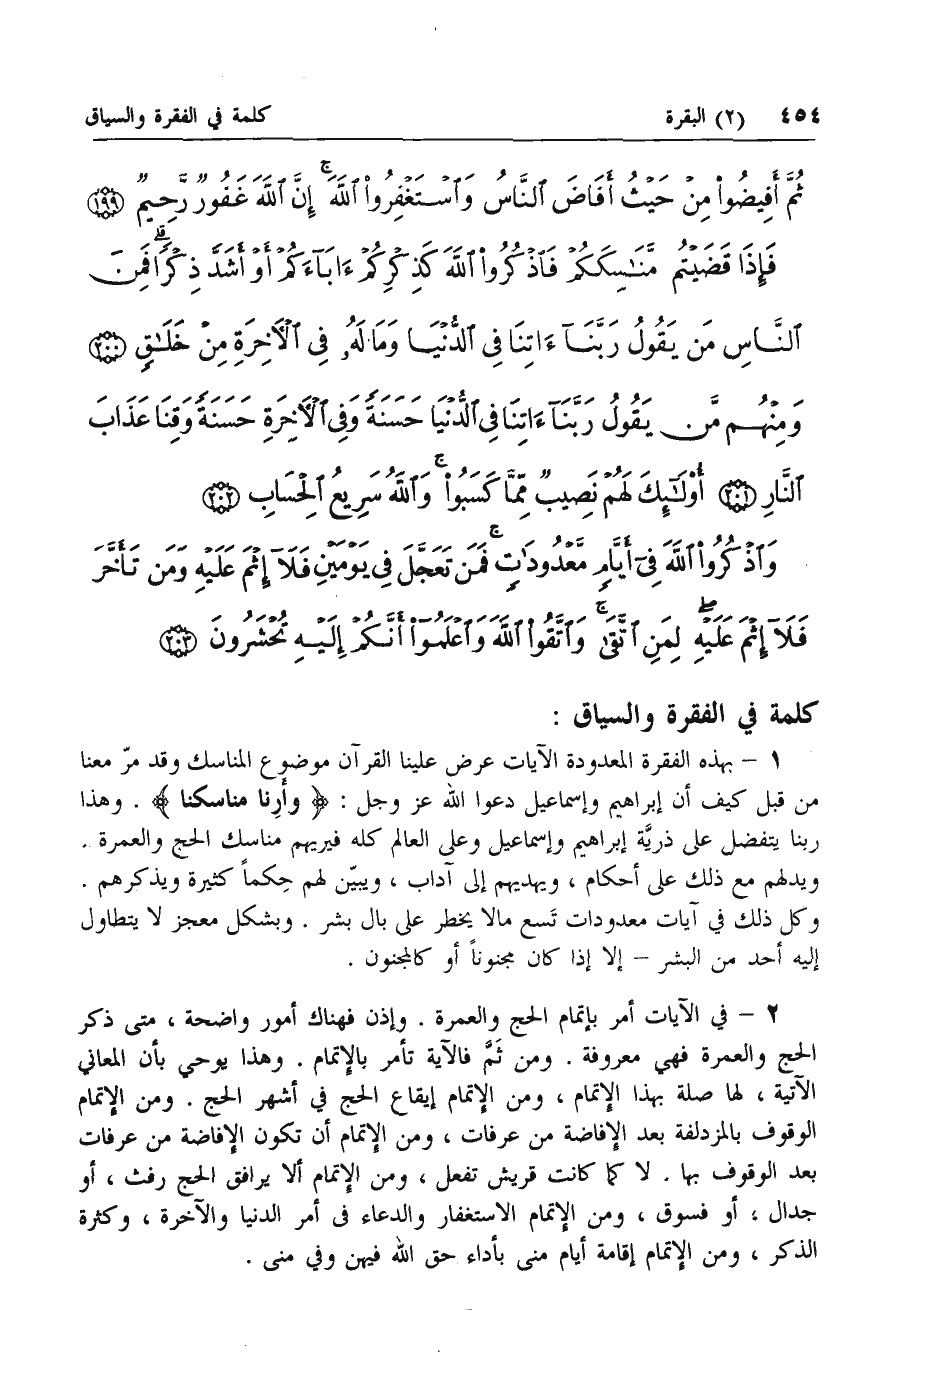 ٤٥٤ (٢) البقرة كلمة في الفقرة والسياق
ثُمَّ أَفِيضُوا۟ مِنْ حَيْثُ أَفَاضَ ٱلنَّاسُ وَٱسْتَغْفِرُوا۟ ٱللَّهَ ۚ إِنَّ ٱللَّهَ غَفُورٌ رَّحِيمٌ ﴿١٩٩﴾
فَإِذَا قَضَيْتُم مَّنَـٰسِكَكُمْ فَٱذْكُرُوا۟ ٱللَّهَ كَذِكْرِكُمْ ءَابَآءَكُمْ أَوْ أَشَدَّ ذِكْرًا ۗ فَمِنَ
ٱلنَّاسِ مَن يَقُولُ رَبَّنَآ ءَاتِنَا فِى ٱلدُّنْيَا وَمَا لَهُۥ فِى ٱلْـَٔاخِرَةِ مِنْ خَلَـٰقٍ ﴿٢٠٠﴾
وَمِنْهُم مَّن يَقُولُ رَبَّنَآ ءَاتِنَا فِى ٱلدُّنْيَا حَسَنَةً وَفِى ٱلْـَٔاخِرَةِ حَسَنَةً وَقِنَا عَذَابَ
ٱلنَّارِ ﴿٢٠١﴾ أُو۟لَـٰٓئِكَ لَهُمْ نَصِيبٌ مِّمَّا كَسَبُوا۟ ۚ وَٱللَّهُ سَرِيعُ ٱلْحِسَابِ ﴿٢٠٢﴾
وَٱذْكُرُوا۟ ٱللَّهَ فِىٓ أَيَّامٍ مَّعْدُودَٰتٍ ۚ فَمَن تَعَجَّلَ فِى يَوْمَيْنِ فَلَآ إِثْمَ عَلَيْهِ وَمَن تَأَخَّرَ
فَلَآ إِثْمَ عَلَيْهِ ۖ لِمَنِ ٱتَّقَىٰ ۗ وَٱتَّقُوا۟ ٱللَّهَ وَٱعْلَمُوٓا۟ أَنَّكُمْ إِلَيْهِ تُحْشَرُونَ ﴿٢٠٣﴾
كلمة في الفقرة والسياق :
١ – بهذه الفقرة المعدودة الآيات عرض علينا القرآن موضوع المناسك وقد مرّ معنا
من قبل كيف أن إبراهيم وإسماعيل دعوا الله عز وجل : ﴿ وأَرِنا مناسكنا ﴾ . وهذا
ربنا يتفضل على ذريَّة إبراهيم وإسماعيل وعلى العالم كله فيريهم مناسك الحج والعمرة .
ويدلهم مع ذلك على أحكام ، ويهديهم إلى آداب ، ويبيّن لهم حِكماً كثيرة ويذكرهم .
وكل ذلك في آيات معدودات تَسع مالا يخطر على بال بشر . وبشكل معجز لا يتطاول
إليه أحد من البشر – إلا إذا كان مجنوناً أو كالمجنون .
٢ – في الآيات أمر بإتمام الحج والعمرة . وإذن فهناك أمور واضحة ، متى ذكر
الحج والعمرة فهي معروفة . ومن ثَمَّ فالآية تأمر بالإتمام . وهذا يوحي بأن المعاني
الآتية ، لها صلة بهذا الإتمام ، ومن الإتمام إيقاع الحج في أشهر الحج . ومن الإتمام
الوقوف بالمزدلفة بعد الإفاضة من عرفات ، ومن الإتمام أن تكون الإفاضة من عرفات
بعد الوقوف بها . لا كما كانت قريش تفعل ، ومن الإتمام ألا يرافق الحج رفث ، أو
جدال ، أو فسوق ، ومن الإتمام الاستغفار والدعاء فى أمر الدنيا والآخرة ، وكثرة
الذكر ، ومن الإتمام إقامة أيام منى بأداء حق الله فيهن وفي منى .